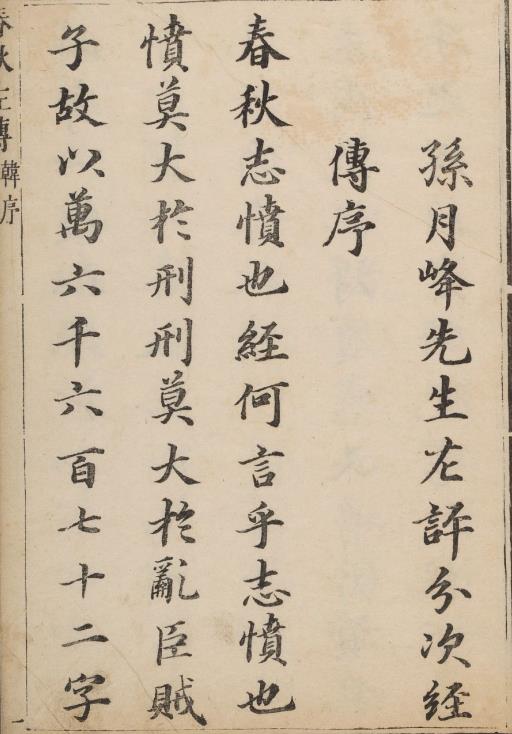 孫月峰先生左評分次経
傳序
春秋志憤也経何言乎志憤也
憤莫大於刑刑莫大於亂臣賊
子故以萬六千六百七十二字
春秋左傳 韓序